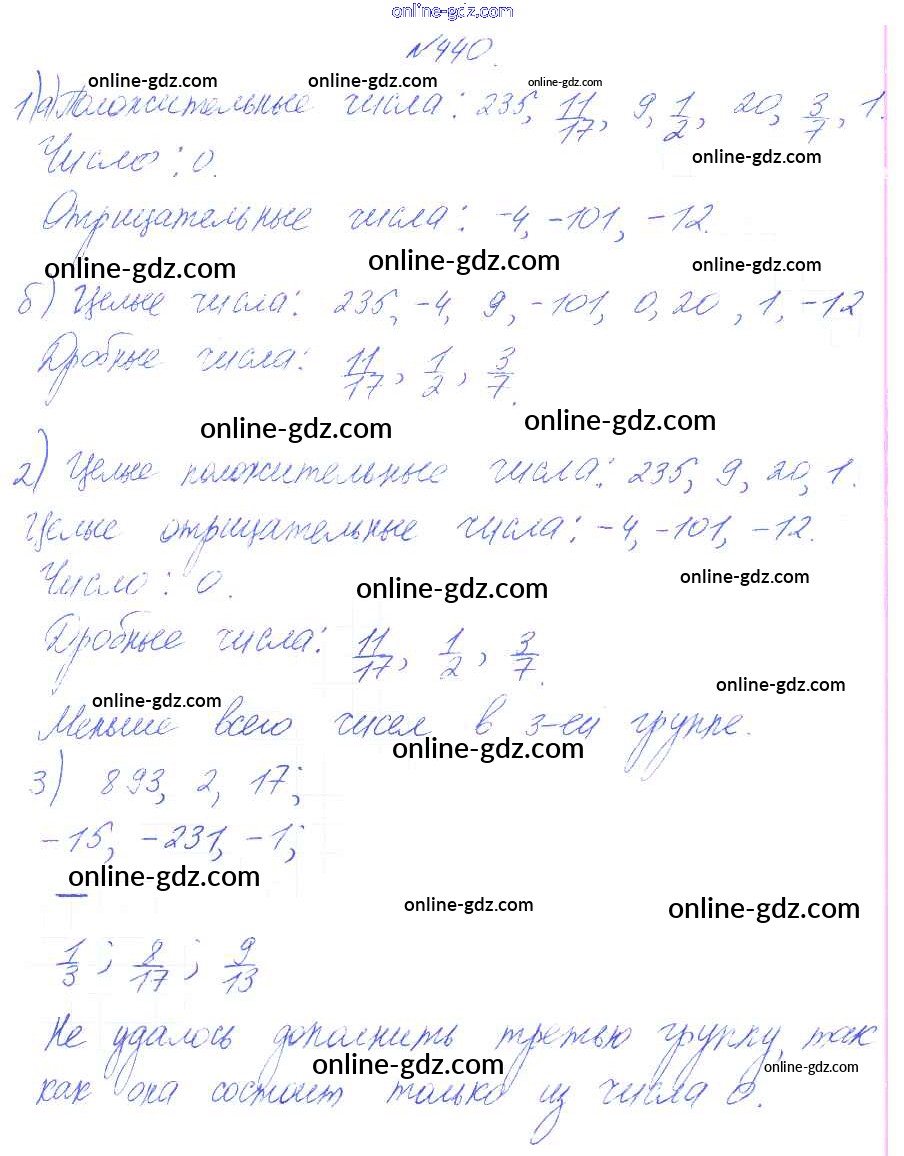 online-gdz.com
№440.
online-gdz.com online-gdz.com online-gdz.com
1) а) Положительные числа: 235, 11/17, 9, 1/2, 20, 3/7, 1.
online-gdz.com
Число: 0.
Отрицательные числа: -4, -101, -12.
online-gdz.com online-gdz.com online-gdz.com
б) Целые числа: 235, -4, 9, -101, 0, 20, 1, -12
Дробные числа: 11/17, 1/2, 3/7.
online-gdz.com online-gdz.com
2) Целые положительные числа: 235, 9, 20, 1.
Целые отрицательные числа: -4, -101, -12.
Число: 0.
online-gdz.com online-gdz.com
Дробные числа: 11/17, 1/2, 3/7.
online-gdz.com online-gdz.com
Меньше всего чисел в 3-ей группе.
online-gdz.com
3) 893, 2, 17;
-15, -231, -1;
online-gdz.com online-gdz.com online-gdz.com
—
1/3; 8/17; 9/13
Не удалось дополнить третью группу, так
online-gdz.com online-gdz.com
как она состоит только из числа 0.